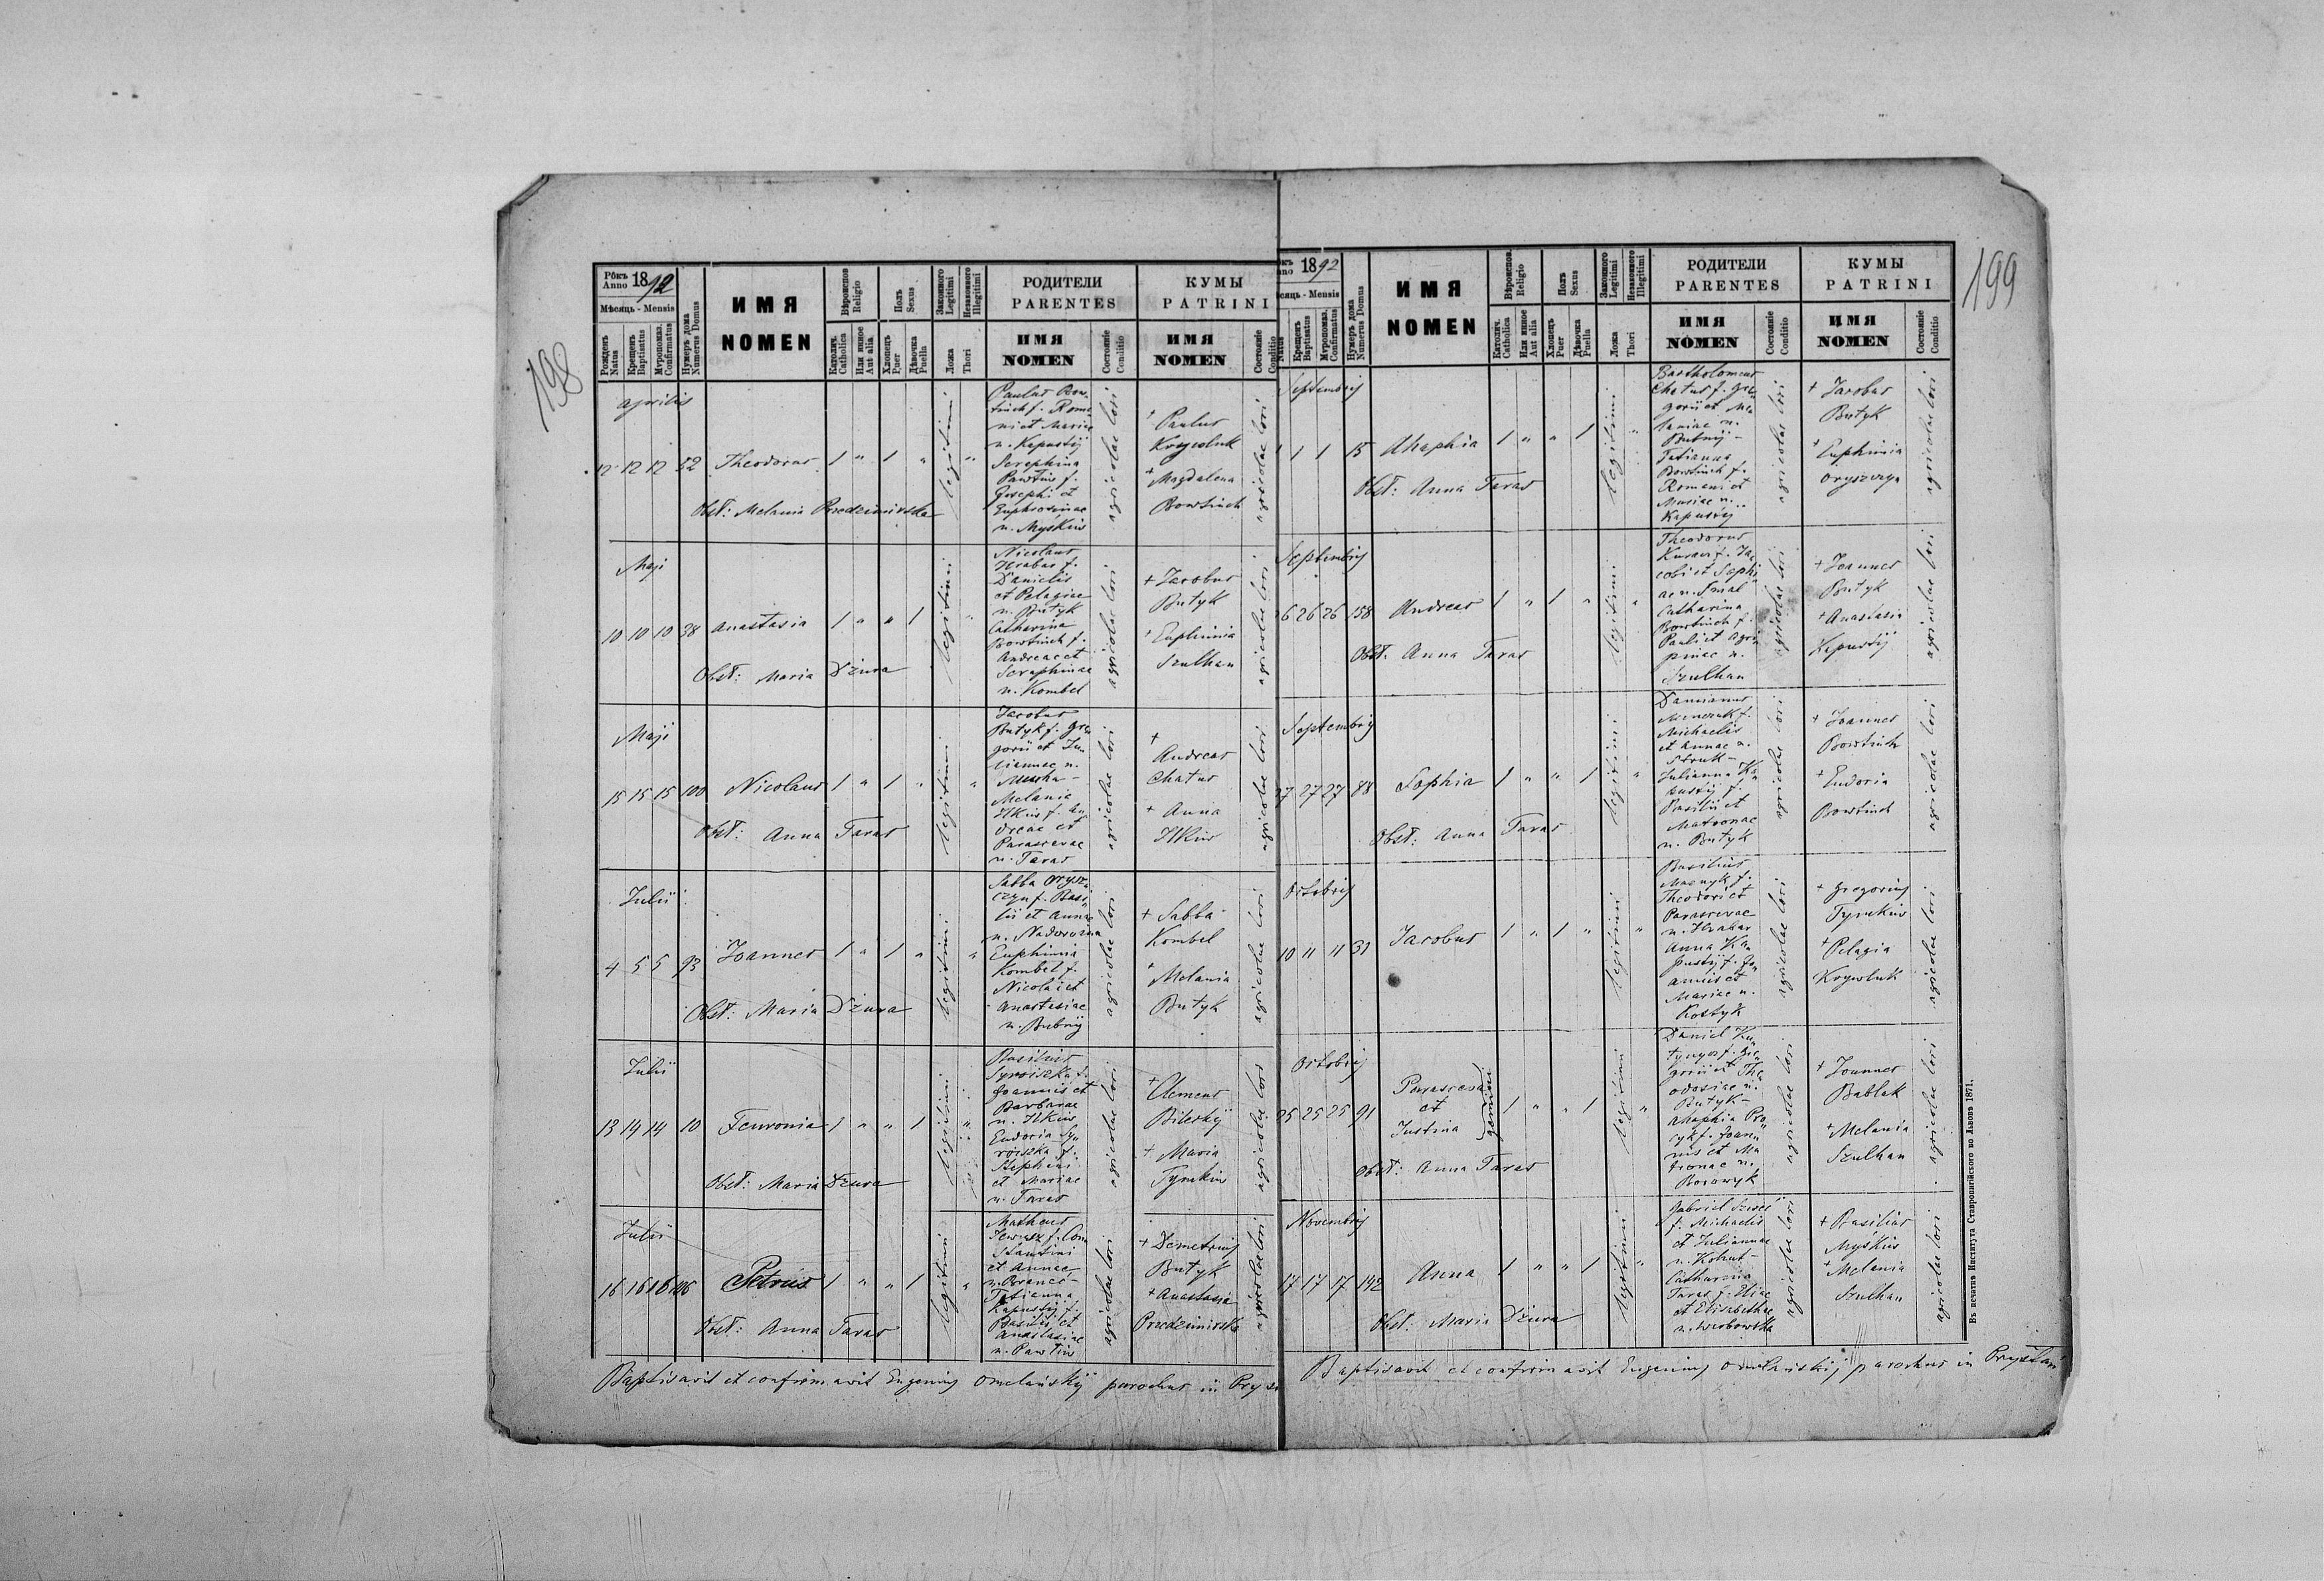 198
Рôкъ Anno 1892
Мѣсяць - Mensis
Рожденъ Natus
Крещенъ Baptisatus
Мѵропомаз. Confirmatus
Нумеръ дома Numerus Domus
ИМЯ NOMEN
Вѣроисповѣд. Religio
Католич. Catholica
Или иное Aut alia
Полъ Sexus
Хлопецъ Puer
Дѣвочка Puella
Законного Legitimi
Незаконного Illegitimi
Ложа Thori
РОДИТЕЛИ PARENTES
ИМЯ NOMEN
Состояніе Conditio
КУМЫ PATRINI
ИМЯ NOMEN
Состояніе Conditio
aprilis
12 12 12 52 Theodorus 1 " 1 " legitimi "
Paulus Bow-
tiuch f. Roma
ni et Mariae
n. Kapustij
Seraphina
Pawtiw f.
Josephi et
Euphrosinae
n. Myskiw
agricolae loci
+ Paulus
Krywoluk
+ Magdalena
Bowtiuch
agricolae loci
Obst: Melania Pncdzimirska
Maji
10 10 10 38 Anastasia 1 " " 1 legitimi "
Nicolaus
Hrabar f.
Danielis
et Pelagiae
n. Butyk
Catharina
Bowtiuch f.
Andreae et
Seraphinae
n. Kombel
agricolae loci
+ Jacobus
Butyk
+ Euphimia
Szulhan
agricolae loci
Obst: Maria Dziura
Maji
15 15 15 100 Nicolaus 1 " 1 " legitimi "
Jacobus
Butyk f. Gre
gorii et Ju
liannae n.
Melania
Ilkiw f. An
dreae et
Parascevae
n. Taras
agricolae loci
+
Andreas
Chatus
+ Anna
Ilkiw
agricolae loci
Obst: Anna Taras
Julii
4 5 5 93 Joannes 1 " 1 " legitimi "
Sabba Orysz
czyn f. Basi
lii et Annae
Euphimia
Kombel f.
Nicolai et
Anastasiae
n. Bubnij
agricolae loci
+ Sabba
Kombel
+ Melania
Butyk
agricolae loci
Obst: Maria Dziura
Julii
13 14 14 10 Fevronia 1 " " 1 legitimi "
Basilius
Syroiszka f.
Joannis et
Barbarae
n. Ilkiw
Eudocia Sy
roiszka f.
Stephani
et Mariae
n. Taras
agricolae loci
+ Clemens
Bileskij
+ Maria
Tymkiw
agricolae loci
Obst: Maria Dziura
Julii
16 16 16 106 Petrus 1 " " 1 legitimi "
Matheus
f. Con
stantini
et Annae
Tatianna
Kapustij f.
Basilii et
Anastasiae
n. Pawtiw
agricolae loci
+ Demetrius
Butyk
+ Anastasia
agricolae loci
Obst: Anna Taras
Baptisavit et confirmavit Eugenius Omelańskij parochus in Prys
199
Anno 1892
Мѣсяць - Mensis
Natus
Крещенъ Baptisatus
Мѵропомаз. Confirmatus
Нумеръ дома Numerus Domus
ИМЯ NOMEN
Вѣроисповѣд. Religio
Католич. Catholica
Или иное Aut alia
Полъ Sexus
Хлопецъ Puer
Дѣвочка Puella
Законного Legitimi
Незаконного Illegitimi
Ложа Thori
РОДИТЕЛИ PARENTES
ИМЯ NOMEN
Состояніе Conditio
КУМЫ PATRINI
ИМЯ NOMEN
Состояніе Conditio
Septembris
1 1 1 15 Ahaphia 1 " " 1 legitimi "
Bartholomeus
Chatus f. Gre
gorii et Me
laniae n.
Bubnij -
Tatianna
Bowtiuch f.
Romani et
Mariae n.
Kapustij
agricolae loci
+ Jacobus
Butyk
+ Euphimia
Oryszczyn
agricolae loci
Obst: Anna Taras
Septembris
26 26 26 158 Andreas 1 " 1 " legitimi "
Theodorus
f. Ja
cobi et Sophi
ae n. Smal
Catharina
Bowtiuch f.
Pauli et Agri
pinae n.
Szulhan
agricolae loci
+ Joannes
Butyk
+ Anastasia
Kapustij
agricolae loci
Obst. Anna Taras
Septembris
27 27 27 88 Sophia 1 " " 1 legitimi "
Damianus
f.
Michaelis
et Annae n.
Struk -
Julianna Ka
pustij f.
Basilii et
Matronae
n. Butyk
agricolae loci
+ Joannes
Bowtiuch
+ Eudocia
Bowtiuch
agricolae loci
Obst: Anna Taras
Octobris
10 11 11 31 Jacobus 1 " 1 " legitimi "
Basilius
f.
Theodori et
Parascevae
n. Hrabar
Anna Ka
pustij f. Jo
annis et
Mariae n.
Kostyk
agricolae loci
+ Gregorius
Tymkiw
+ Pelagia
Krywoluk
agricolae loci
Octobris
25 25 25 91 Parasceva et Justina gemini 1 " " 1 legitimi "
Daniel
f. Gre
gorii et The
odosiae n.
Butyk -
Ahaphia Pro
cyk f. Joan
nis et Ma
tronae n.
Borowyk
agricolae loci
+ Joannes
Bablak
+ Melania
Szulhan
agricolae loci
Obst: Anna Taras
Novembris
17 17 17 142 Anna 1 " " 1 legitimi "
Gabriel
f. Michaelis
et Juliannae
n. Kohut -
Catharina
Taras f. Eliae
et Elisabethae
n. Werbowska
agricolae loci
+ Basilius
Myskiw
+ Melania
Szulhan
agricolae loci
Obst: Maria Dziura
Baptisavit et confirmavit Eugenius Omelańskij parochus in Prystań
Въ печатнѣ Института Ставропигійского во Львовѣ 1871.